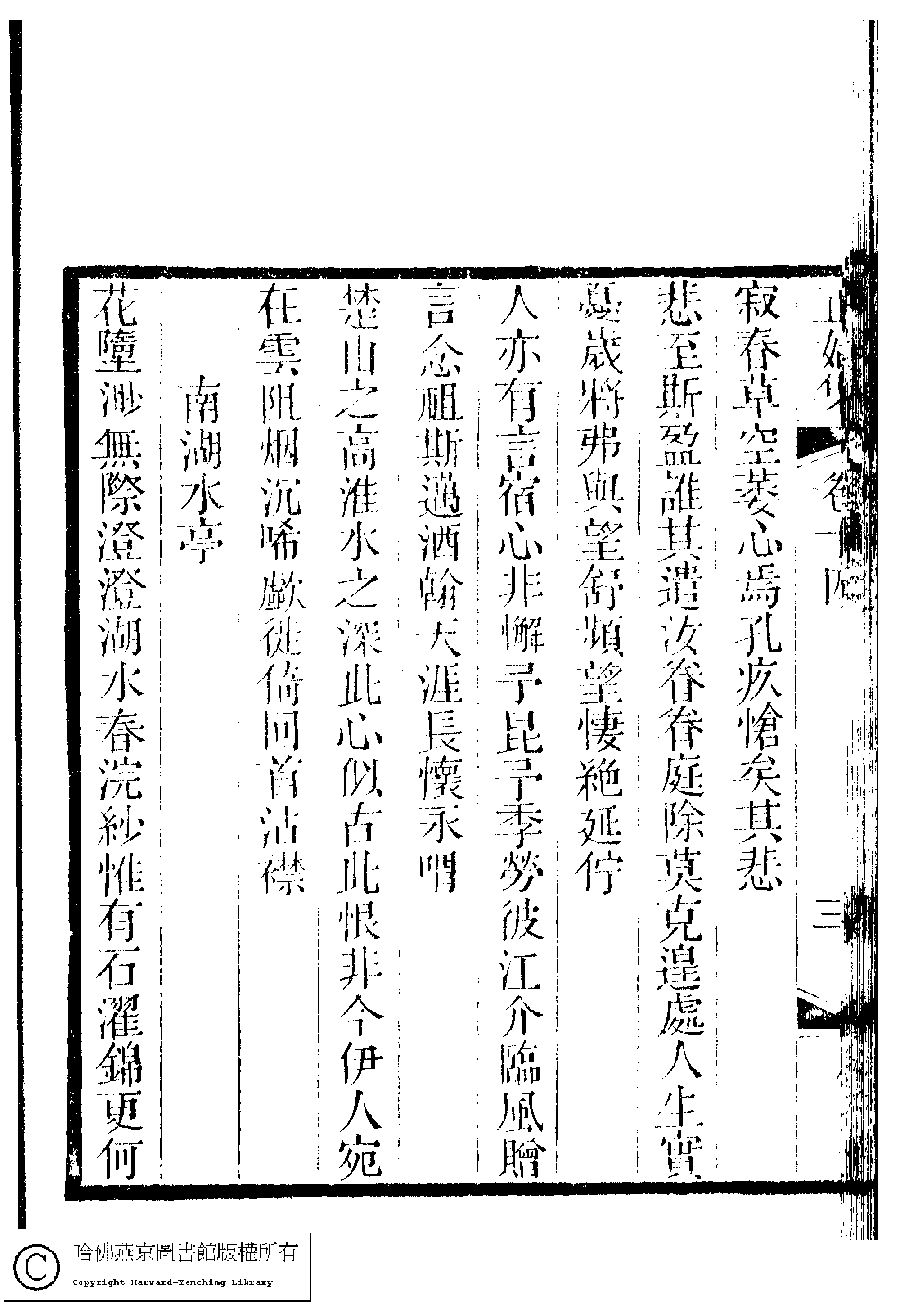 正始集 卷十四 三
寂春草空萎心焉孔疚愴矣其悲
悲至斯盈誰其遣汝眷眷庭除莫克遑處人生實
歲將弗與望舒頻望悽絶延佇
人亦有言宿心非懈予昆予季勞彼江介臨風贈
言念祖斯邁洒翰天涯長懷永喟
楚山之高淮水之深此心似古此恨非今伊人宛
在雲阻烟沉唏歔徙倚回首沾襟
南湖水亭
花墮渺無際澄澄湖水春浣紗惟有石濯錦更何
哈佛燕京圖書館版權所有
Copyright Harvard-Yenching Library